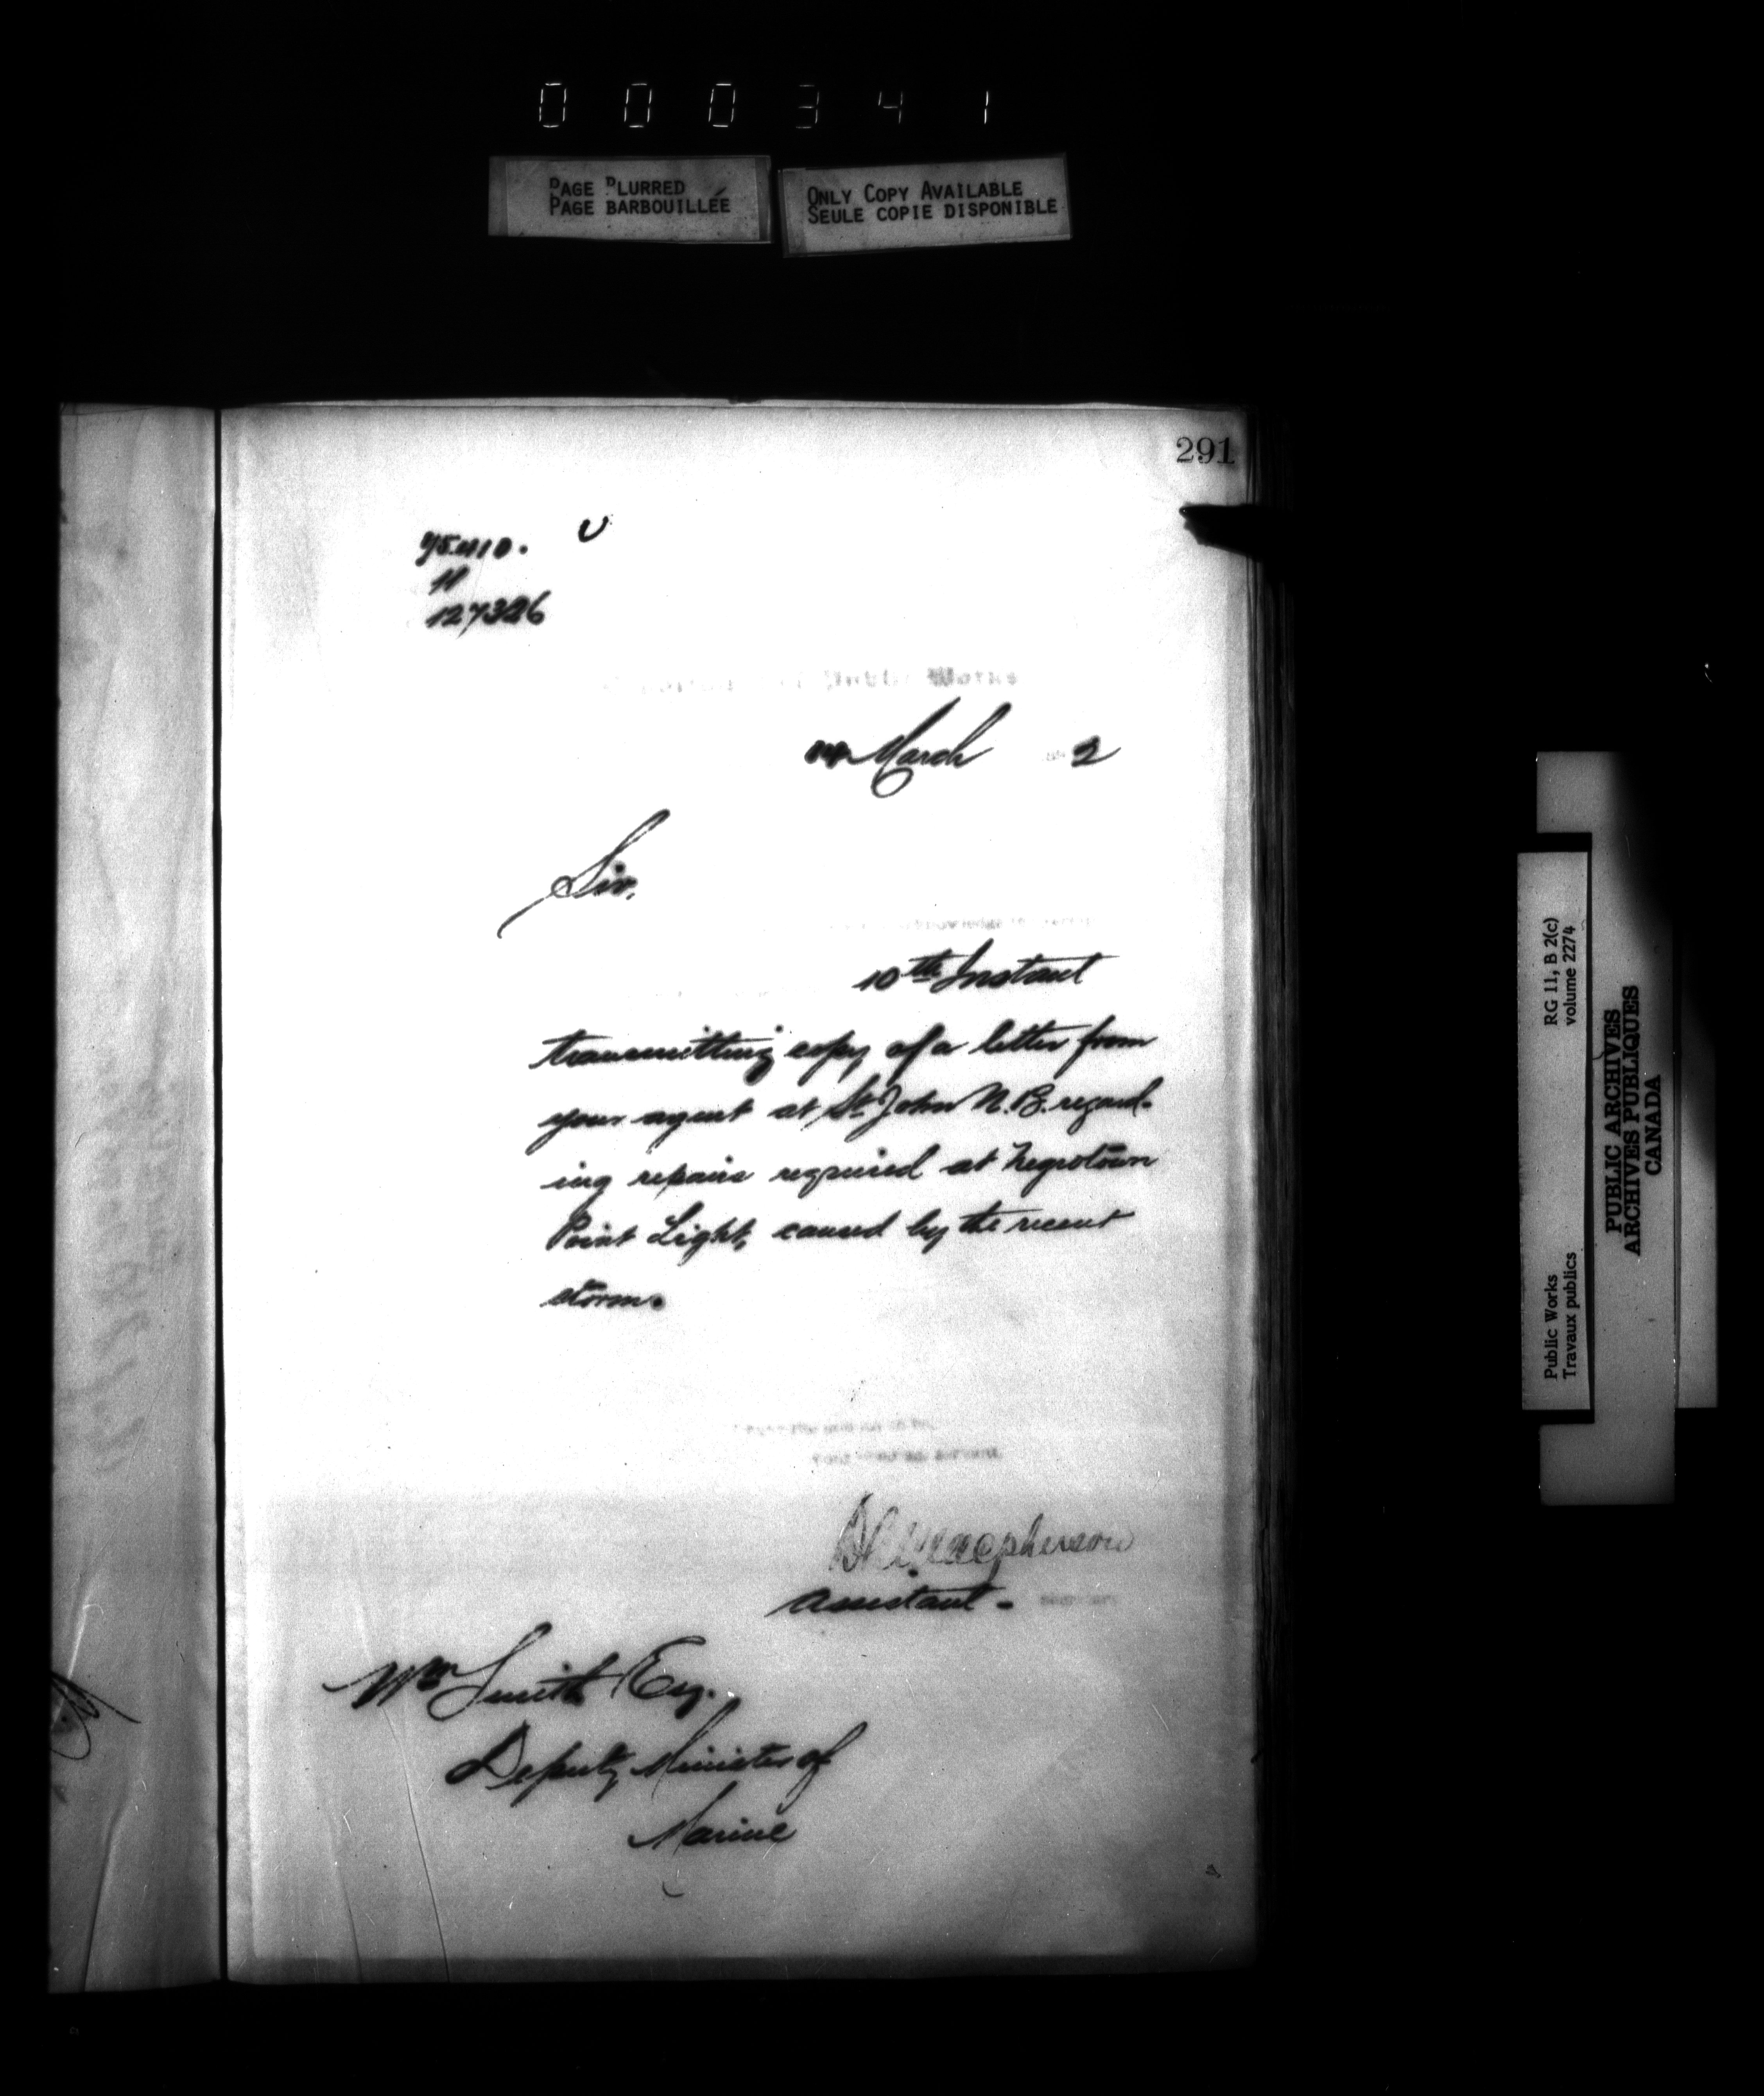 000341
PAGE BLURRED
PAGE BARBOUILLÉE
ONLY COPY AVAILABLE
SEULE COPIE DISPONIBLE
291
127326
Public Works
March 2
Sir,
acknowledge
10th Instant
transmitting copy of a letter from
your agent at St. John N.B. regard-
ing repairs required at Negrotown
Point Light, caused by the recent
storm.
servant.
Macpherson
Assistant -
Wm Smith Esq.
Deputy Minister of
Marine
Public Works
Travaux publics
RG 11, B 2(c)
volume 2274
PUBLIC ARCHIVES
ARCHIVES PUBLIQUES
CANADA